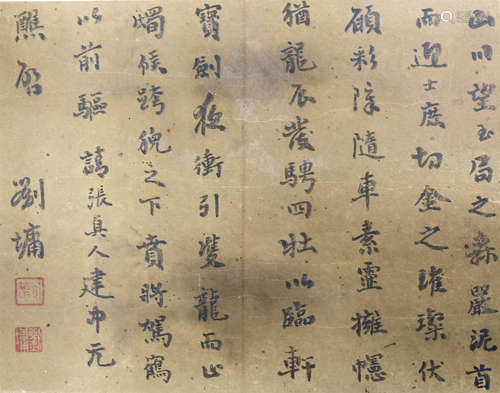 山川望玉局之森嚴泥首
而迎士庶切金之璀璨伏
顧彩降隨車素靈擁幰
猶龍辰發騁四壯以臨軒
寶劍夜衝引雙龍而
燭候跨鵝之下賁將駕鶴
以前驅 謁張真人建沖元
醮啓 劉墉